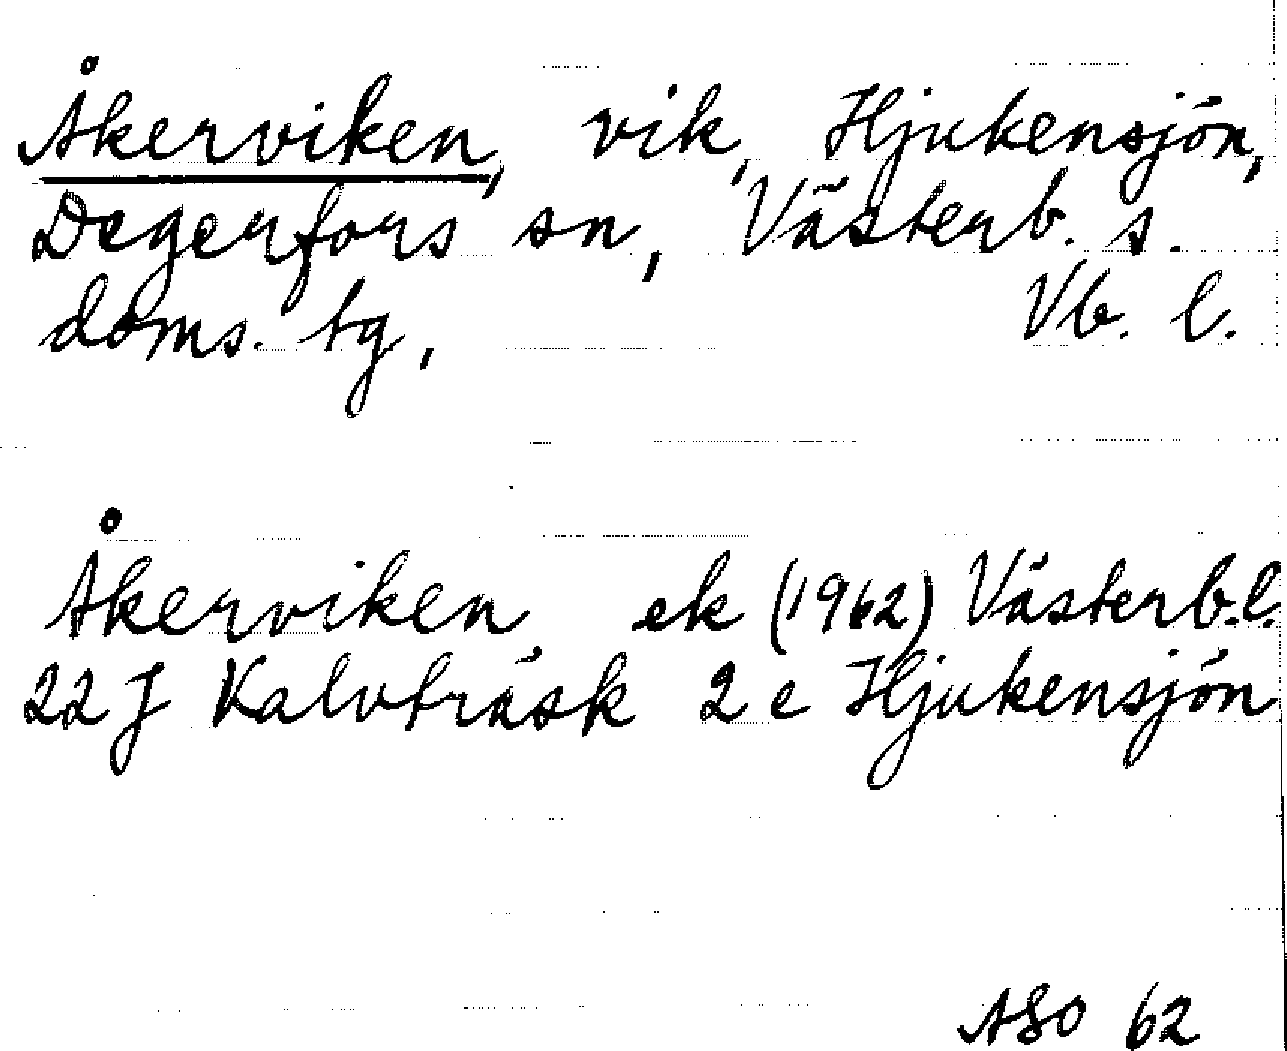 Åkerviken, vik, Hjukensjön,
Degerfors sn, Västerb. s.
doms. tg, Vb. l.
Åkerviken, ek (1962) Västerb.l.
22 J Kalvträsk 2 e Hjukensjön
ASO 62